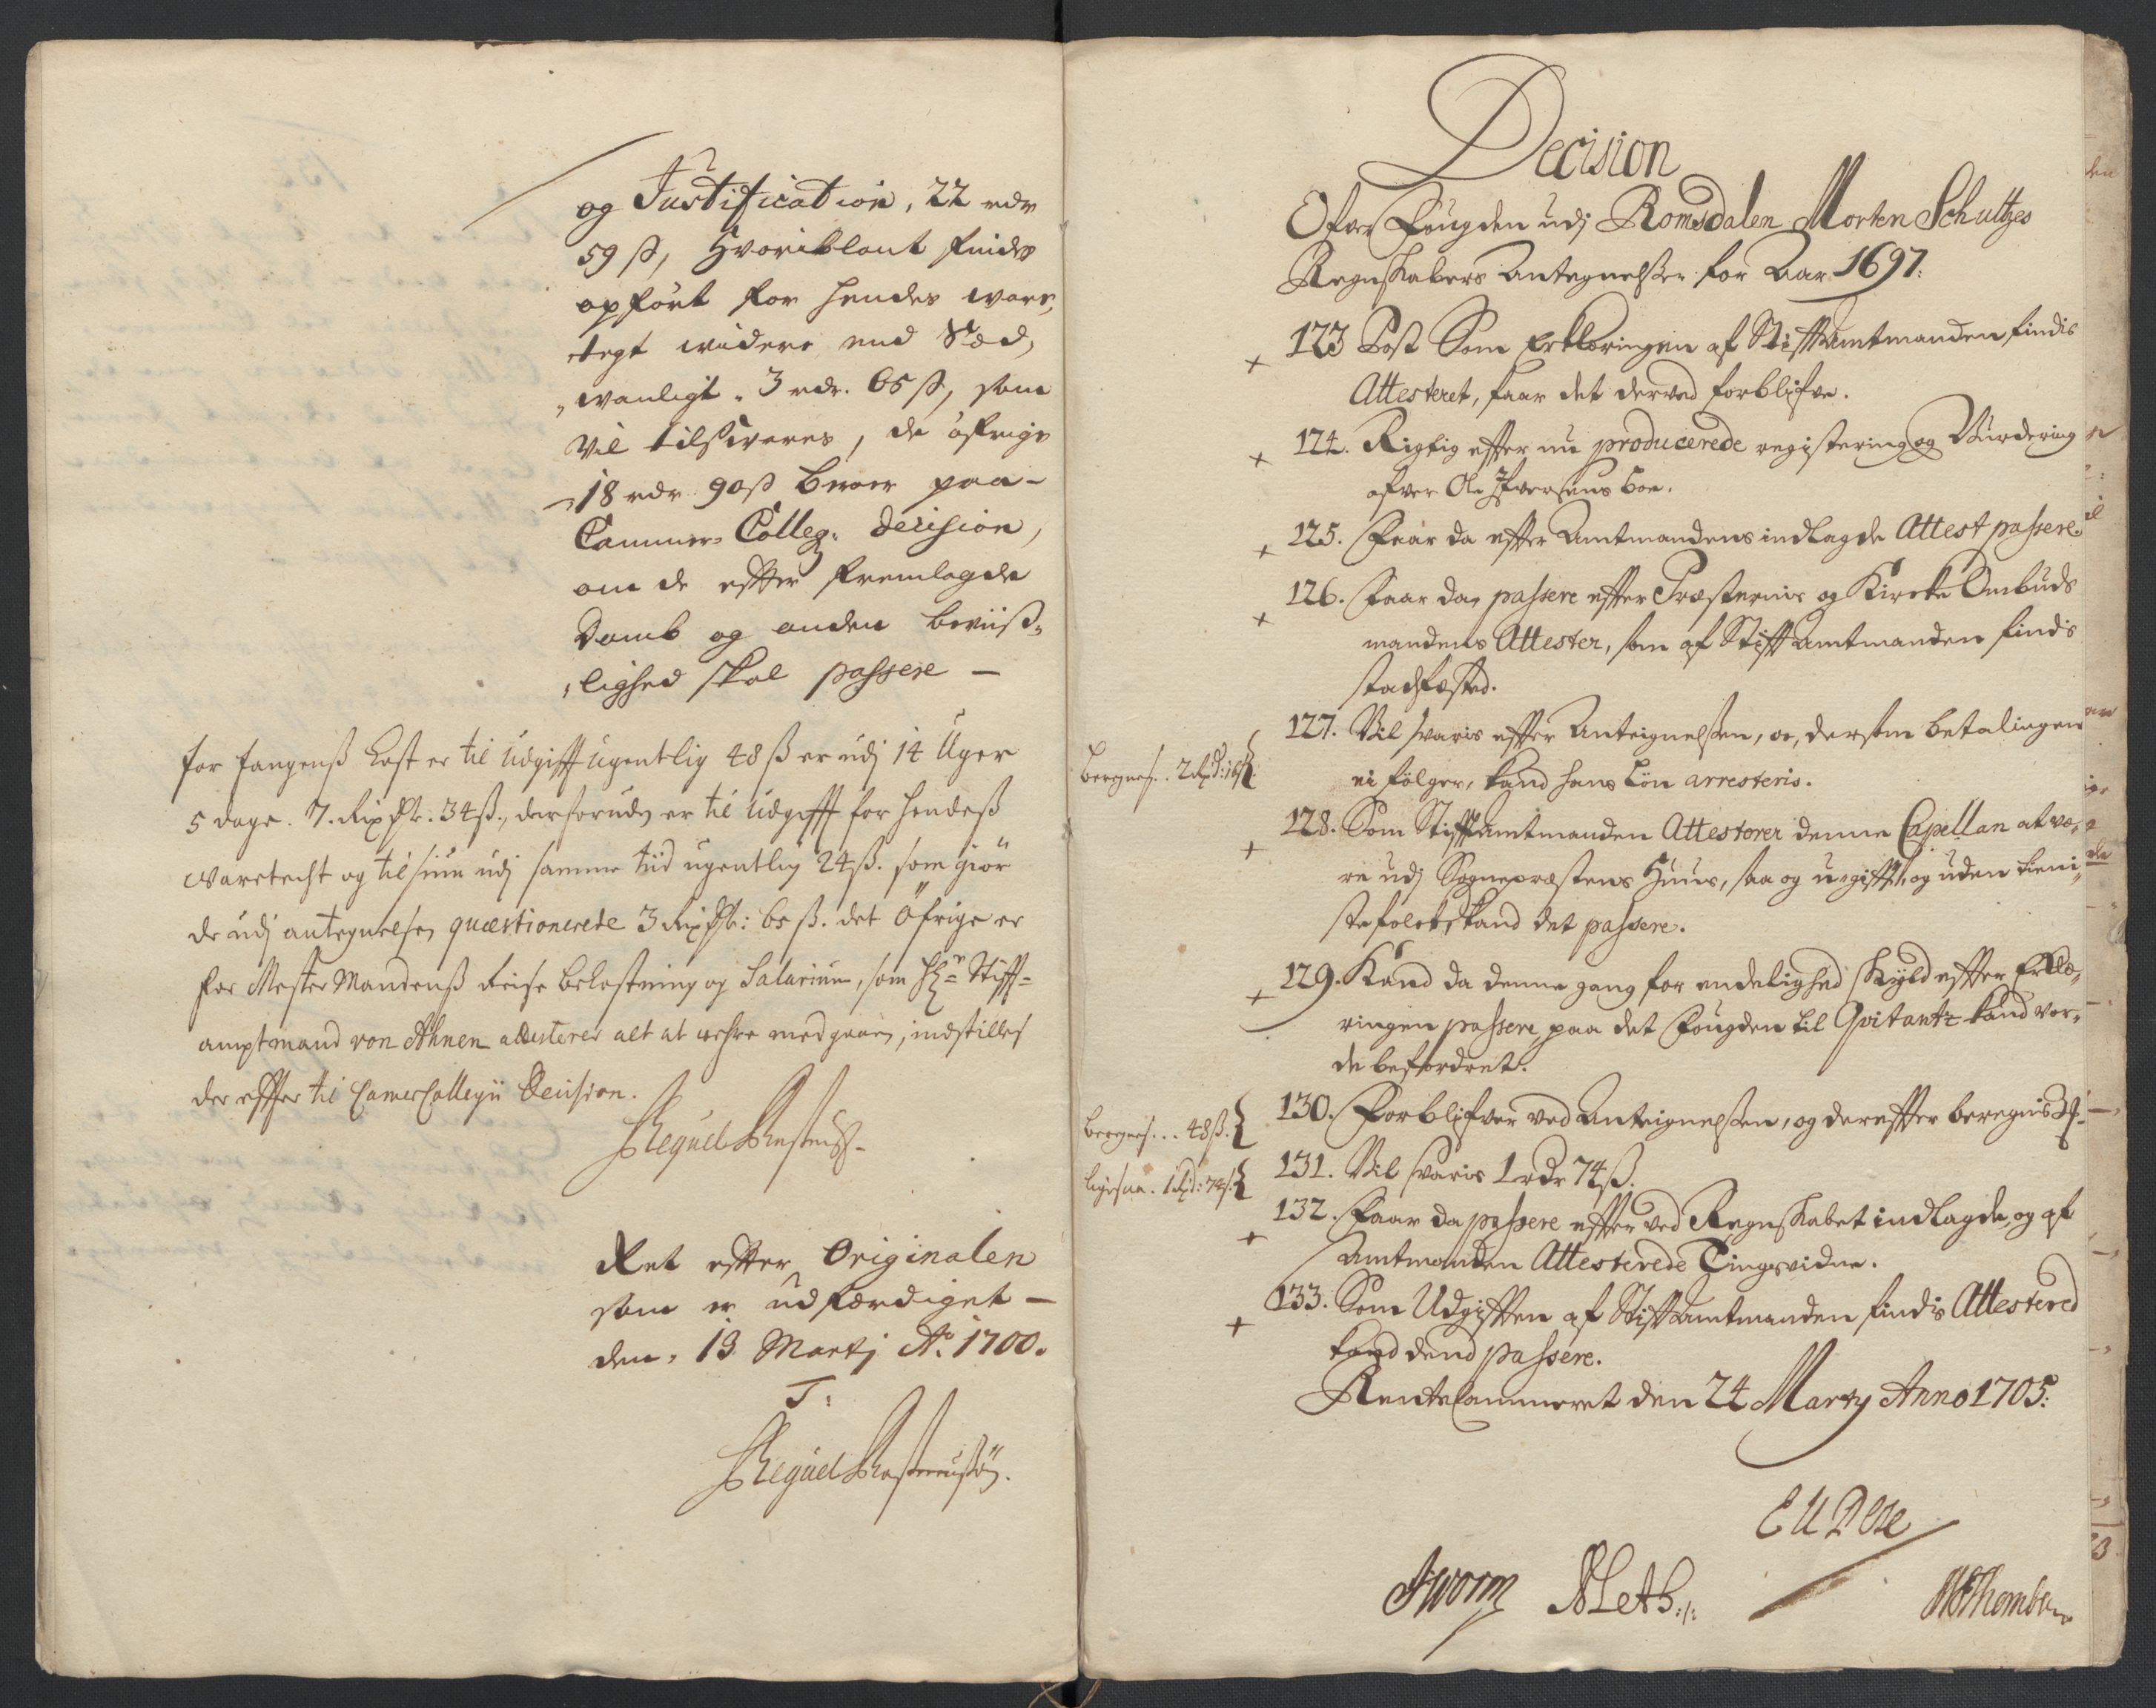 og Justification, 22 rdr
59 ß, Hvoriblant findes
opført for hendes vare,
tegt widere end Sæd,
wanligt. 3 rdr. 65 ß, som
vil tilsvares, de øfrige
18 rdr 90 ß beroer paa
Cammer-Colleg: decision,
om de effter fremlagde
Domb og anden beviiß,
lighed skal passere —
for fangenß Kost er til Udgifft Ugentlig 48 ß er udj 14 Uger
5 dage. 7. Rixdlr. 34 ß., desforuden er til Udgifft for hendeß
waretecht og tilsiun udj samme tiid ugentlig 24 ß. som giør
de udj antegnelsen quæstionerede 3 Rixdlr: 65 ß. det Öfrige er
for Mester Mandenß Reise bekostning og Salarium, som Hr Stiff-
amptmand von Ahnen attesterer alt at wehre medgaaen, indstilles
der effter til Camer Collegii Decision.
Ret effter Originalen
som er udferdiget —
den. 13 Martj Ao. 1700.
T:
Decision
Ofver Fougden udj Romsdalen Morten Schultzes
Regnskabers Antegnelser for Aar 1697:
+ 123 Post Som Erklæringen af Stifftamtmanden findis
Attesteret, faar det derved forblifve.
+ 124. Rigtig effter nu producerede registering og Vurdering
ofver Ole Iversens boe.
+ 125. Faar da effter Amtmandens indlagde Attest passere.
+ 126. Faar da passere effter Præsternis og Kircke Ombuds
mandens Attester, som af Stifftamtmanden findis
stadfæsted.
beregnes.. 2 Rd: 16 ß. { 127. Vil svaris effter Anteignelssen, oc, dersom betalingen
ei følger, kand hans Løn arresteris.
+ 128. Som Stifftamtmanden Attesterer denne Capellan at væ,
re udj Sogneprestens Huus, saa og u-gifft, og uden tieni,
stefolck, kand det passere.
+ 129. Kand da denne gang for endelighed skyld effter Erklæ,
ringen passere, paa det Fougden til Qvitantz kand vor,
de befordret.
beregnes... 48 ß. { 130. Forblifver ved Anteignelssen, og dereffter beregnis
ligesaa. 1 Rd: 74 ß. { 131. Vil svaris 1 rdr 74 ß.
+ 132. Faar da passere effter ved Regnskabet indlagde, og af
Amtmanden Attesterede Tingsvidne.
+ 133. Som Udgifften af Stifftamtmanden findis Attestered
kand dend passere.
RenteCammeret den 24 Marty Anno 1705: